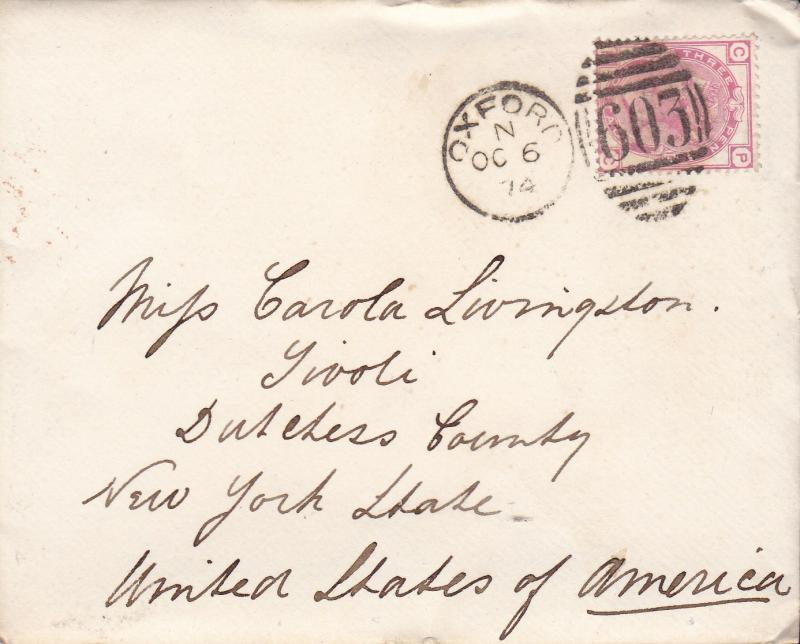 C
THREE
PEN
P
603
OXFORD
N
OC 6
74
Miss Carola Livingston.
Tivoli
Dutchess County
New York State
United States of America